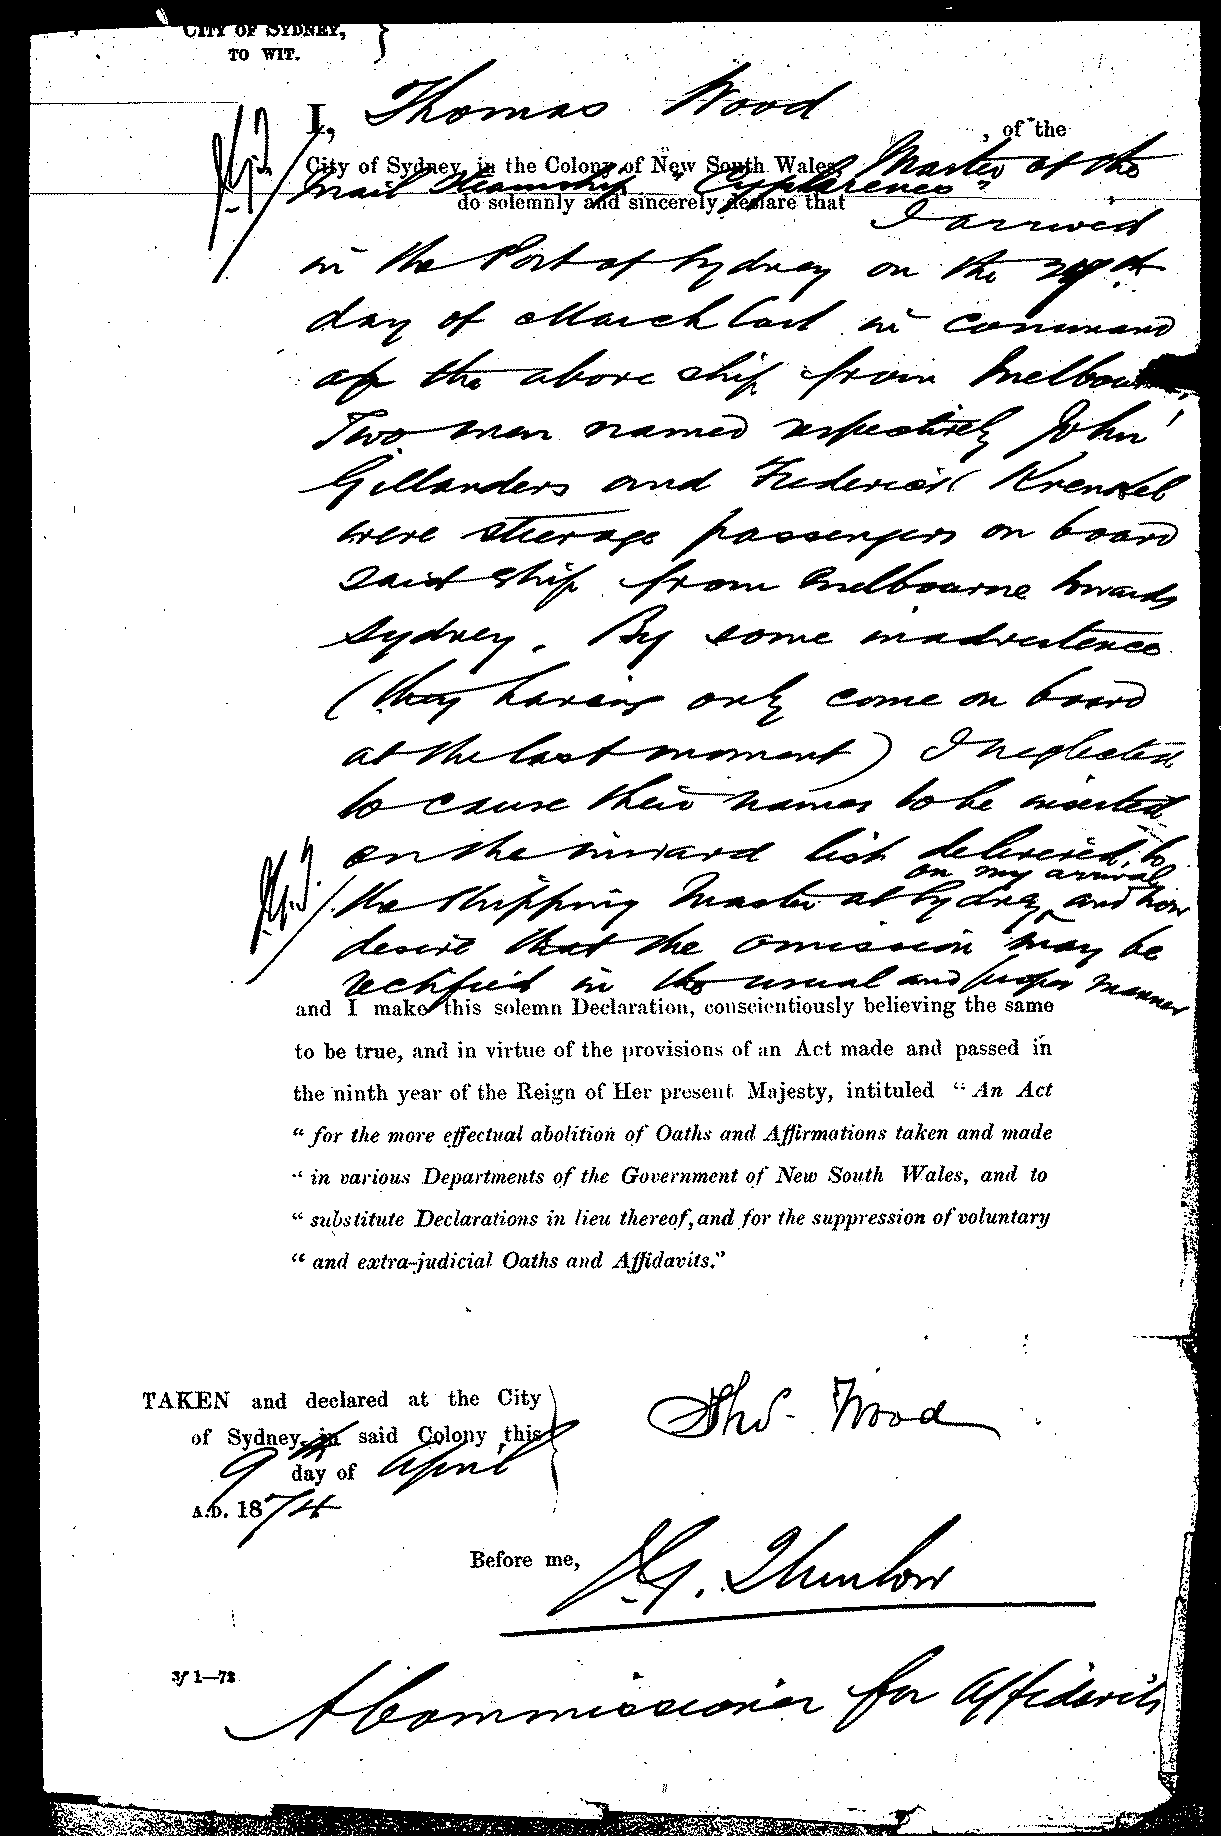 CITY OF SYDNEY, }
TO WIT.
I, Thomas Wood , of the
City of Sydney, in the Colony of New South Wales, Master of the
Mail Steamship "Cyphrenes"
do solemnly and sincerely declare that I arrived
in the Port of Sydney on the
day of March last in command
of the above ship from Melbourne.
Two men named respectively John
Gillanders and Frederick Krenkel
were steerage passengers on board
said ship from Melbourne towards
Sydney. By some inadvertence
(they having only come on board
at the last moment) I neglected
to cause their names to be inserted
on the inward list delivered to
on my arrival
the Shipping Master at Sydney and now
desire that the omission may be
rectified in the usual and proper manner
and I make this solemn Declaration, conscientiously believing the same
to be true, and in virtue of the provisions of an Act made and passed in
the ninth year of the Reign of Her present Majesty, intituled "An Act
"for the more effectual abolition of Oaths and Affirmations taken and made
"in various Departments of the Government of New South Wales, and to
"substitute Declarations in lieu thereof, and for the suppression of voluntary
"and extra-judicial Oaths and Affidavits."
TAKEN and declared at the City
of Sydney, in said Colony this
9th day of April
A.D. 1874
Thos. Wood
Before me,
A Commissioner for Affidavits
3f 1—72